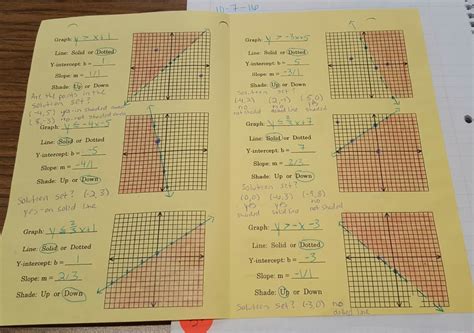 10-7-16
Graph: y > x+1
Line: Solid or Dotted
Y-intercept: b = 1
Slope: m = 1/1
Shade: Up or Down
Are the points in the
solution set?
Graph: y ≤ -4x-5
Line: Solid or Dotted
Y-intercept: b = -5
Slope: m = -4/1
Shade: Up or Down
Solution set? (-2, 3)
yes - on solid line
Graph: y ≤ 2/3 x+1
Line: Solid or Dotted
Y-intercept: b = 1
Slope: m = 2/3
Shade: Up or Down
Graph: y > -3x+5
Line: Solid or Dotted
Y-intercept: b = 5
Slope: m = -3/1
Shade: Up or Down
Solution set?
no yes no
not shaded shaded not shaded
Line: Solid or Dotted
Y-intercept: b = 7
Slope: m = 2/3
Shade: Up or Down
Solution set?
(0,0)
yes yes no
shaded solid line not shaded
Graph: y > -x-3
Line: Solid or Dotted
Y-intercept: b = -3
Slope: m = -1/1
Shade: Up or Down
Solution set? (-3,0) no
dotted line